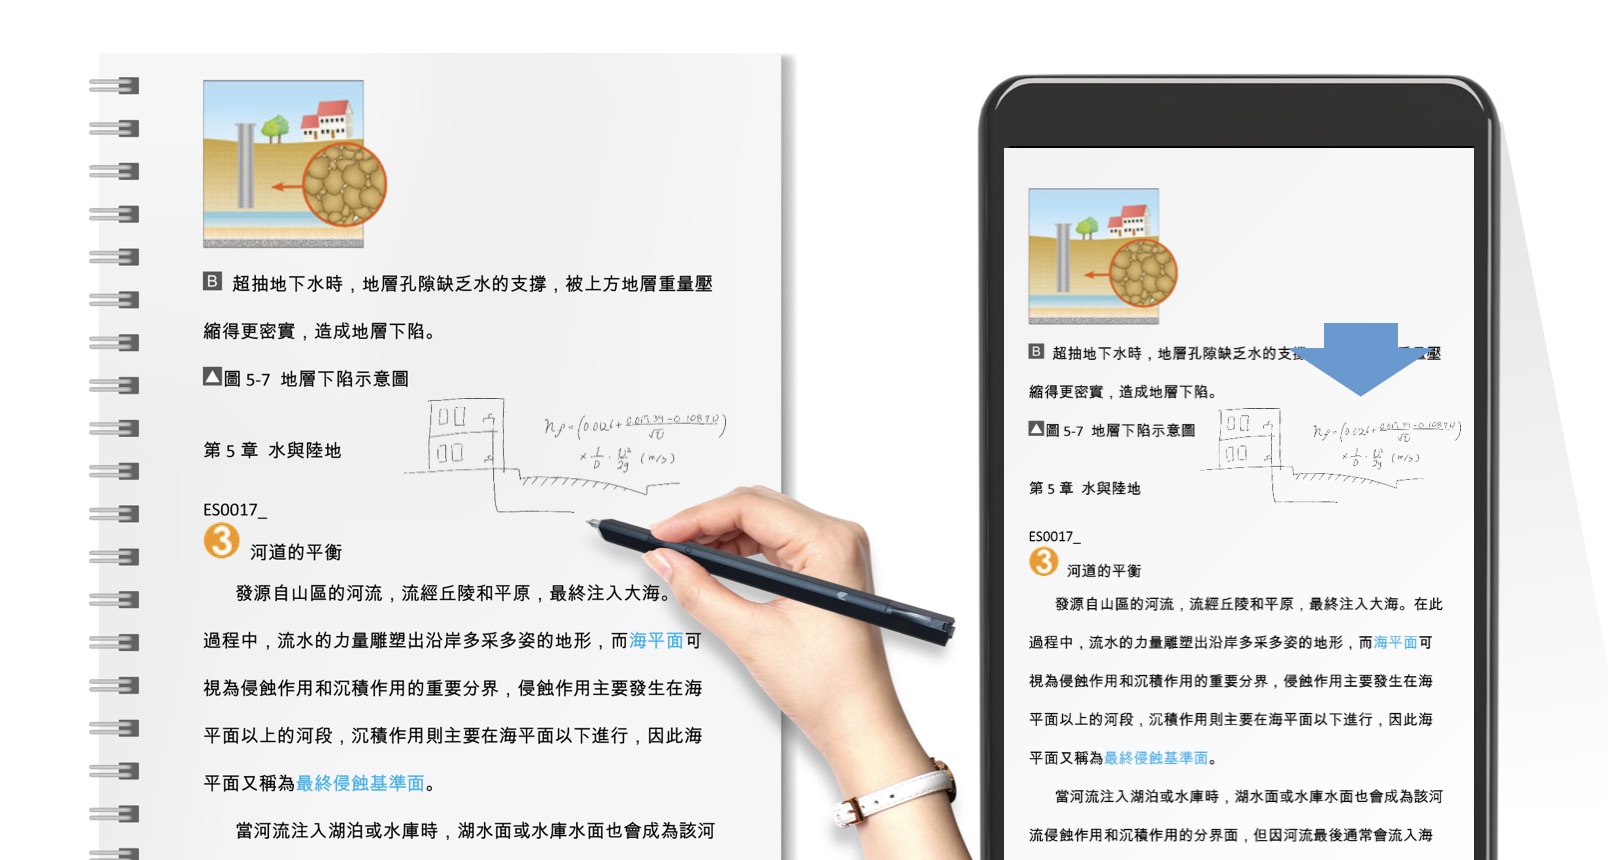 B 超抽地下水時，地層孔隙缺乏水的支撐，被上方地層重量壓
縮得更密實，造成地層下陷。
圖 5-7 地層下陷示意圖
第 5 章 水與陸地
ES0017_
3 河道的平衡
發源自山區的河流，流經丘陵和平原，最終注入大海。
過程中，流水的力量雕塑出沿岸多采多姿的地形，而海平面可
視為侵蝕作用和沉積作用的重要分界，侵蝕作用主要發生在海
平面以上的河段，沉積作用則主要在海平面以下進行，因此海
平面又稱為最終侵蝕基準面。
當河流注入湖泊或水庫時，湖水面或水庫水面也會成為該河
B 超抽地下水時，地層孔隙缺乏水的支 量壓
縮得更密實，造成地層下陷。
圖 5-7 地層下陷示意圖
第 5 章 水與陸地
ES0017_
3 河道的平衡
發源自山區的河流，流經丘陵和平原，最終注入大海。在此
過程中，流水的力量雕塑出沿岸多采多姿的地形，而海平面可
視為侵蝕作用和沉積作用的重要分界，侵蝕作用主要發生在海
平面以上的河段，沉積作用則主要在海平面以下進行，因此海
平面又稱為最終侵蝕基準面。
當河流注入湖泊或水庫時，湖水面或水庫水面也會成為該河
流侵蝕作用和沉積作用的分界面，但因河流最後通常會流入海